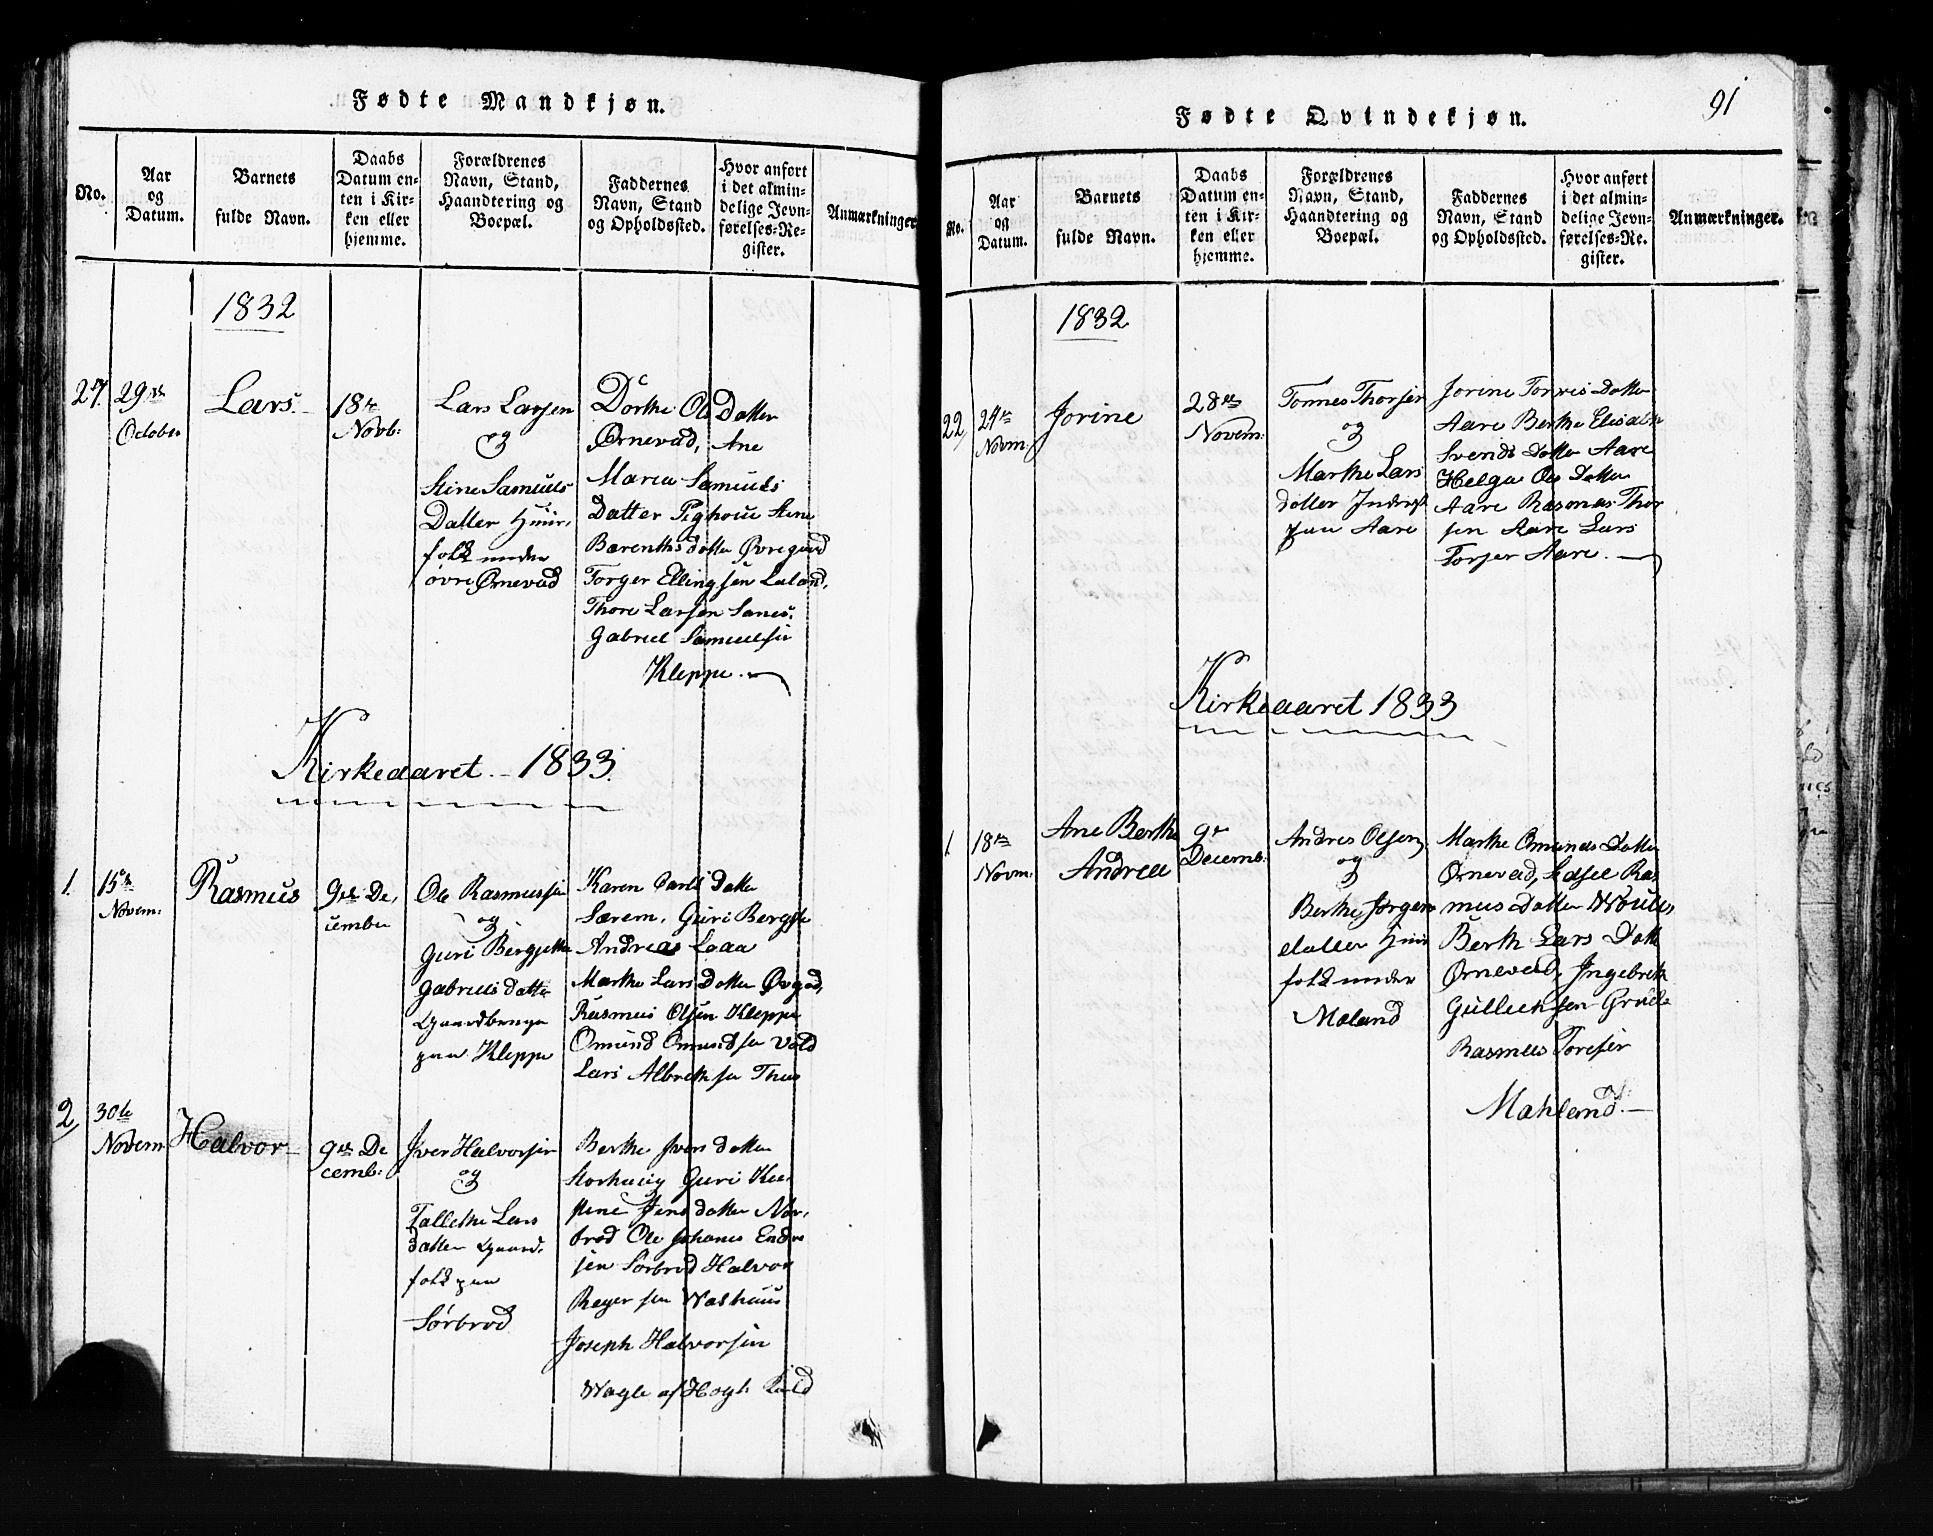 Fødte Mandkjøn.
No.
Aar
og
Datum.
Barnets
fulde Navn.
Daabs
Datum en-
ten i Kir-
ken eller
hjemme.
Forældrenes
Navn, Stand,
Haandtering og
Boepæl.
Faddernes
Navn, Stand
og Opholdssted.
Hvor anført
i det almin-
delige Jevn-
førelses-Re-
gister.
Anmærkninger
1832
27.
29de
October
Lars.
18de
Novb:
Lars Larsen
og
Stine Samuels
Datter Huus,
folk under
øvre Ørnevad
Dorthe Ols Datter
Ørnevad, Ane
Maria Samuels
Datter Stine
Barenths datter Øvregaard
Torger Ellingsen Laland,
Thore Larsen Sanes.
Gabriel Samuelsen
Kleppe.
Kirkeaaret. 1833.
1.
15de
Novem:
Rasmus
9de De,
cember
Ole Rasmussen
og
Guri Bergjetha
Gabriels datter
paa Kleppe
Karen datter
Særem, Guri Bergjte
Andreas Loaa
Marthe Lars Datter
Rasmus Olsen Kleppe
Omund Omundsen Vold
Lars Albrethsen Thus
2
30te
Novem
Halvor
9de De
cemb:
Iver Halvorsen
og
Tallethe Lars
datter Gaard,
folk paa
Sørbrød
Berthe Ivers datter
Guri
Jens datter Nor,
brød Ole Johanes Endre
sen Sørbrød Halvor
Reyersen Washuus
Joseph Halvorsen
Wagle af Hogl.
91
Fødte Qvindekjøn.
No.
Aar
og
Datum.
Barnets
fulde Navn.
Daabs
Datum en-
ten i Kir-
ken eller
hjemme.
Forældrenes
Navn, Stand,
Haandtering og
Boepæl.
Faddernes
Navn, Stand
og Opholdssted.
Hvor anført
i det almin-
delige Jevn-
førelses-Re-
gister.
Anmærkninger.
1832
22
24de
Novm:
Jorine
28de
Novem:
Tonnes Thorsen
og
Marthe Lars
datter
paa Aare
Jorine Torris Datter
Aare Berthe Elisabth
Svends Datter Aare
Helga Ols Datter
Aare Rasmus Thor
sen Aare Lars
Torser Aare.
Kirkeaaret 1833
1.
18de
Novm:
Ane Berthe
Andrea
9de
Decemb:
Andres Olsen
og
Berthe Jørgens
datter Huus
folk under
Moland
Marthe Omunds Datter
Ørnevad, Ras
mus datter
Berth Lars Datter
Ørnevad, Ingebreth
Gullecksen Grude
Rasmus Toresen
Mahland.